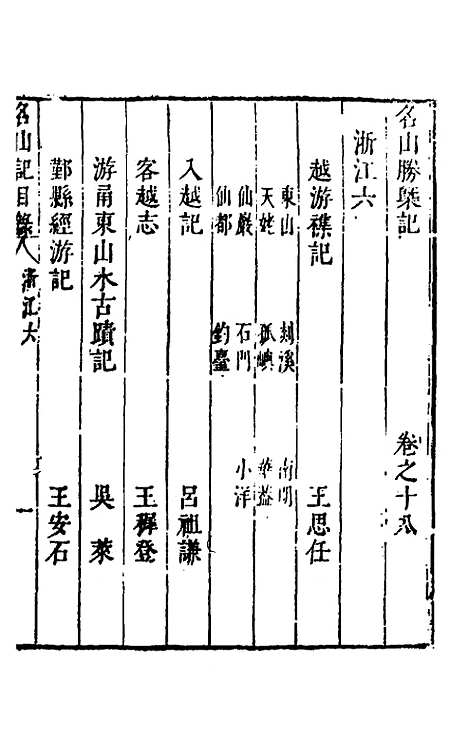 名山勝槩記 卷之十八
浙江六
越游襍記 王思任
東山 剡溪 南明
天姥 孤嶼 華蓋
仙巖 石門 小洋
仙都 釣臺
入越記 呂祖謙
客越志 王穉登
游甬東山水古蹟記 吳萊
鄞縣經游記 王安石
名山記目錄 浙江六 一